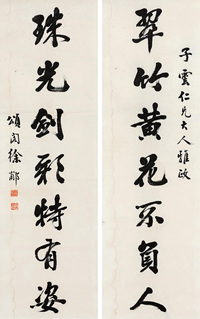 子雲仁兄大人雅政
翠竹黃花不負人
珠光劍彩特有姿
頌閣徐郙